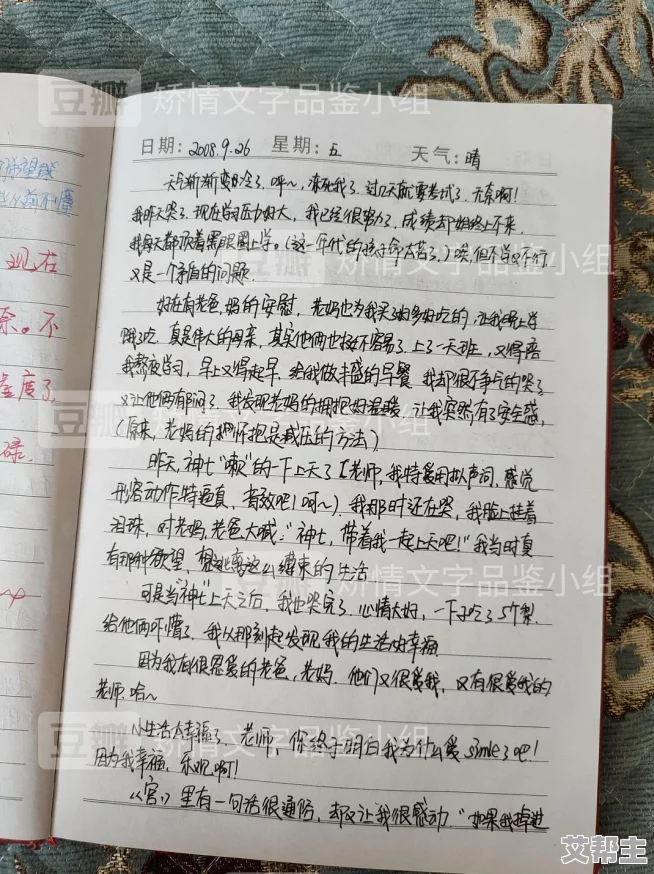 日期: 2008.9.26 星期: 五 天气: 晴
天气渐渐变冷了.呼~,冻死我了.过几天就要考试了.无奈啊!
我昨天哭了.现在学习压力好大,我已经很努力了,成绩却始终上不来.
我每天都顶着黑眼圈上学。(这一年代的孩子命太苦了.)唉,但不学又不行
又是一个矛盾的问题.
好在有老爸,妈的安慰,老妈也为我买了好多好吃的,让我晚上学
饿了吃.真是伟大的母亲,其实他俩也挺不容易了.上了一天班,又得陪
我熬夜学习,早上又得起早,给我做丰盛的早餐.我却很不争气的哭了
又让他俩郁闷了.我发现老妈的拥抱好温暖,让我突然有了安全感,
(原来,老妈的拥抱是减压的方法)
昨天,神七"嗖"的一下上天了【老师,我特爱用拟声词,感觉
形容动作特逼真,有效吧!呵~).我那时还在哭,我脸上挂着
泪珠,对老妈,老爸大喊:"神七,带着我一起上天吧!"我当时真
有那种欲望,想逃离这么束的生活
可是当"神七"上天之后,我也哭完了.心情大好,一下子吃了5个梨.
给他俩吓懵了.我从那刻起发现我的生活好幸福
因为我有很恩爱的老爸,老妈.他们又很爱我,又有很爱我的
老师.哈~
小生活太幸福了.老师,你终于明白我为什么爱simle了吧!
因为我幸福,乐呗啊!
《宫》里有一句话很通俗,却又让我很感动."如果我掉进
豆瓣 矫情文字品鉴小组
豆瓣 矫情文字品鉴小组
豆瓣 矫情文字品鉴小组
豆瓣 矫情文字品鉴小组
豆瓣 矫情文字品鉴小组
艾帮主